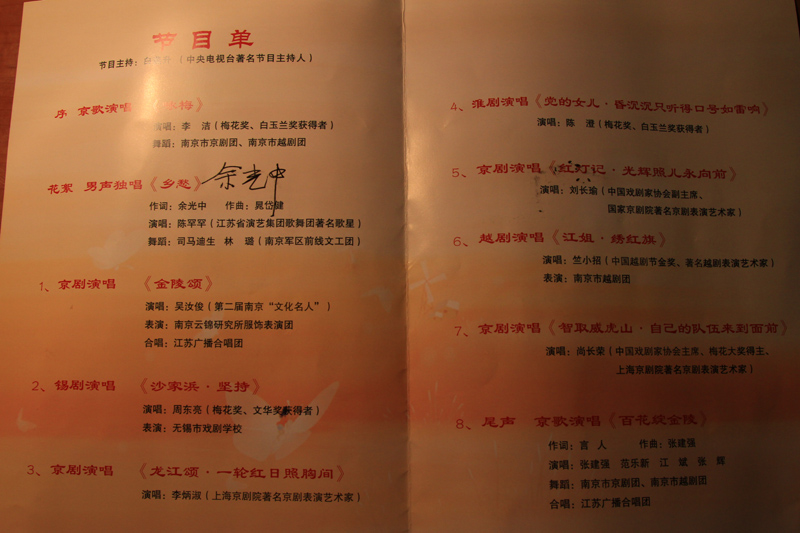 节目单
节目主持：白 （中央电视台著名节目主持人）
序 京歌演唱 《 梅》
演唱：李 洁（梅花奖、白玉兰奖获得者）
舞蹈：南京市京剧团、南京市越剧团
花絮 男声独唱《乡愁》 余光中
作词：余光中 作曲：晁岱健
演唱：陈罕罕（江苏省演艺集团歌舞团著名歌星）
舞蹈：司马迪生 林 璐（南京军区前线文工团）
1、京剧演唱 《金陵颂》
演唱：吴汝俊（第二届南京“文化名人”）
表演：南京云锦研究所服饰表演团
合唱：江苏广播合唱团
2、锡剧演唱 《沙家浜·坚持》
演唱：周东亮（梅花奖、文华奖获得者）
表演：无锡市戏剧学校
3、京剧演唱 《龙江颂·一轮红日照胸间》
演唱：李炳淑（上海京剧院著名京剧表演艺术家）
4、淮剧演唱《党的女儿·昏沉沉只听得口号如雷响》
演唱：陈 澄（梅花奖、白玉兰奖获得者）
5、京剧演唱《红灯记·光辉照儿永向前》
演唱：刘长瑜（中国戏剧家协会副主席、
国家京剧院著名京剧表演艺术家）
6、越剧演唱《江姐·绣红旗》
演唱：竺小招（中国越剧节金奖、著名越剧表演艺术家）
表演：南京市越剧团
7、京剧演唱《智取威虎山·自己的队伍来到面前》
演唱：尚长荣（中国戏剧家协会主席、梅花大奖得主、
上海京剧院著名京剧表演艺术家）
8、尾声 京歌演唱《百花绽金陵》
作词：言 人 作曲：张建强
演唱：张建强 范乐新 江 斌 张 辉
舞蹈：南京市京剧团、南京市越剧团
合唱：江苏广播合唱团